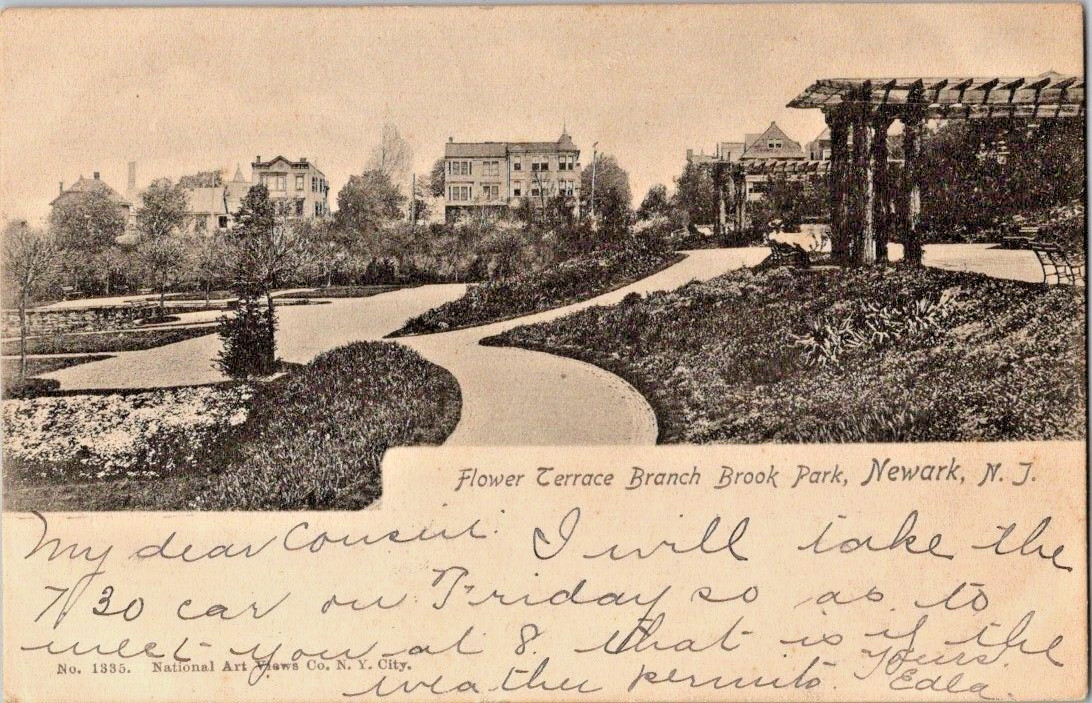 Flower Terrace Branch Brook Park, Newark, N. J.
My dear Cousin. I will take the
7/30 car on Friday so as to
meet you at 8. that is if the
weather permits. Yours.
Edla.
No. 1335. National Art Views Co. N. Y. City.